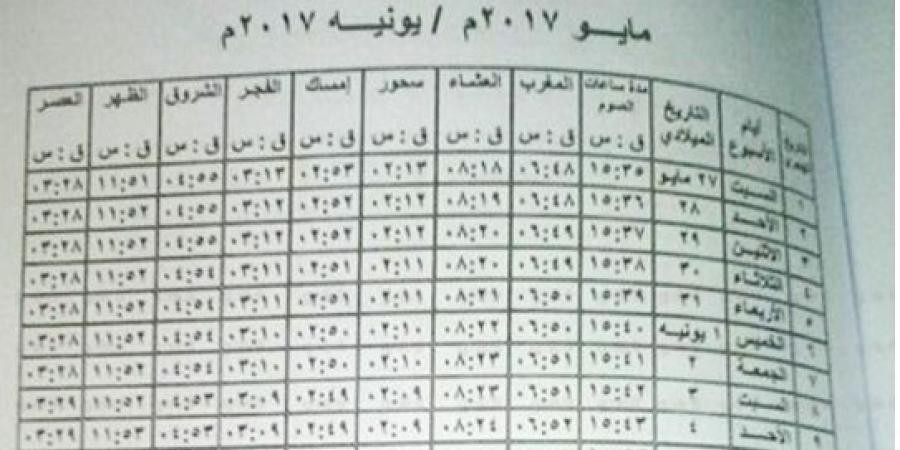 مايو ٢٠١٧م / يونيه ٢٠١٧م
أيام الأسبوع التاريخ الميلادي مدة ساعات الصوم المغرب العشاء سحور إمساك الفجر الشروق الظهر العصر
ق : س ق : س ق : س ق : س ق : س ق : س ق : س ق : س ق : س
١ السبت ٢٧ مايو ١٥:٣٥ ٠٦:٤٨ ٠٨:١٨ ٠٢:١٣ ٠٢:٥٣ ٠٣:١٣ ٠٤:٥٥ ١١:٥١ ٠٣:٢٨
٢ الأحد ٢٨ ١٥:٣٦ ٠٦:٤٨ ٠٨:١٩ ٠٢:١٢ ٠٢:٥٢ ٠٣:١٢ ٠٤:٥٥ ١١:٥٢ ٠٣:٢٨
٣ الاثنين ٢٩ ١٥:٣٧ ٠٦:٤٩ ٠٨:٢٠ ٠٢:١٢ ٠٢:٥٢ ٠٣:١٢ ٠٤:٥٥ ١١:٥٢ ٠٣:٢٨
٤ الثلاثاء ٣٠ ١٥:٣٨ ٠٦:٤٩ ٠٨:٢٠ ٠٢:١١ ٠٢:٥١ ٠٣:١١ ٠٤:٥٤ ١١:٥٢ ٠٣:٢٨
٥ الأربعاء ٣١ ١٥:٣٩ ٠٦:٥٠ ٠٨:٢١ ٠٢:١١ ٠٢:٥١ ٠٣:١١ ٠٤:٥٤ ١١:٥٢ ٠٣:٢٨
٦ الخميس ١ يونيه ١٥:٤٠ ٠٦:٥٠ ٠٨:٢٢ ٠٢:١٠ ٠٢:٥٠ ٠٣:١٠ ٠٤:٥٤ ١١:٥٢ ٠٣:٢٨
٧ الجمعة ٢ ١٥:٤١ ٠٦:٥١ ٠٨:٢٣ ٠٢:١٠ ٠٢:٥٠ ٠٣:١٠ ٠٤:٥٤ ١١:٥٢ ٠٣:٢٨
٨ السبت ٣ ١٥:٤٢ ٠٦:٥١ ٠٨:٢٣ ٠٢:٠٩ ٠٢:٤٩ ٠٣:٠٩ ٠٤:٥٣ ١١:٥٢ ٠٣:٢٩
٩ الأحد ٤ ١٥:٤٣ ٠٦:٥٢ ٠٨:٢٤ ٠٢:٠٩ ٠٢:٤٩ ٠٣:٠٩ ٠٤:٥٣ ١١:٥٣ ٠٣:٢٩